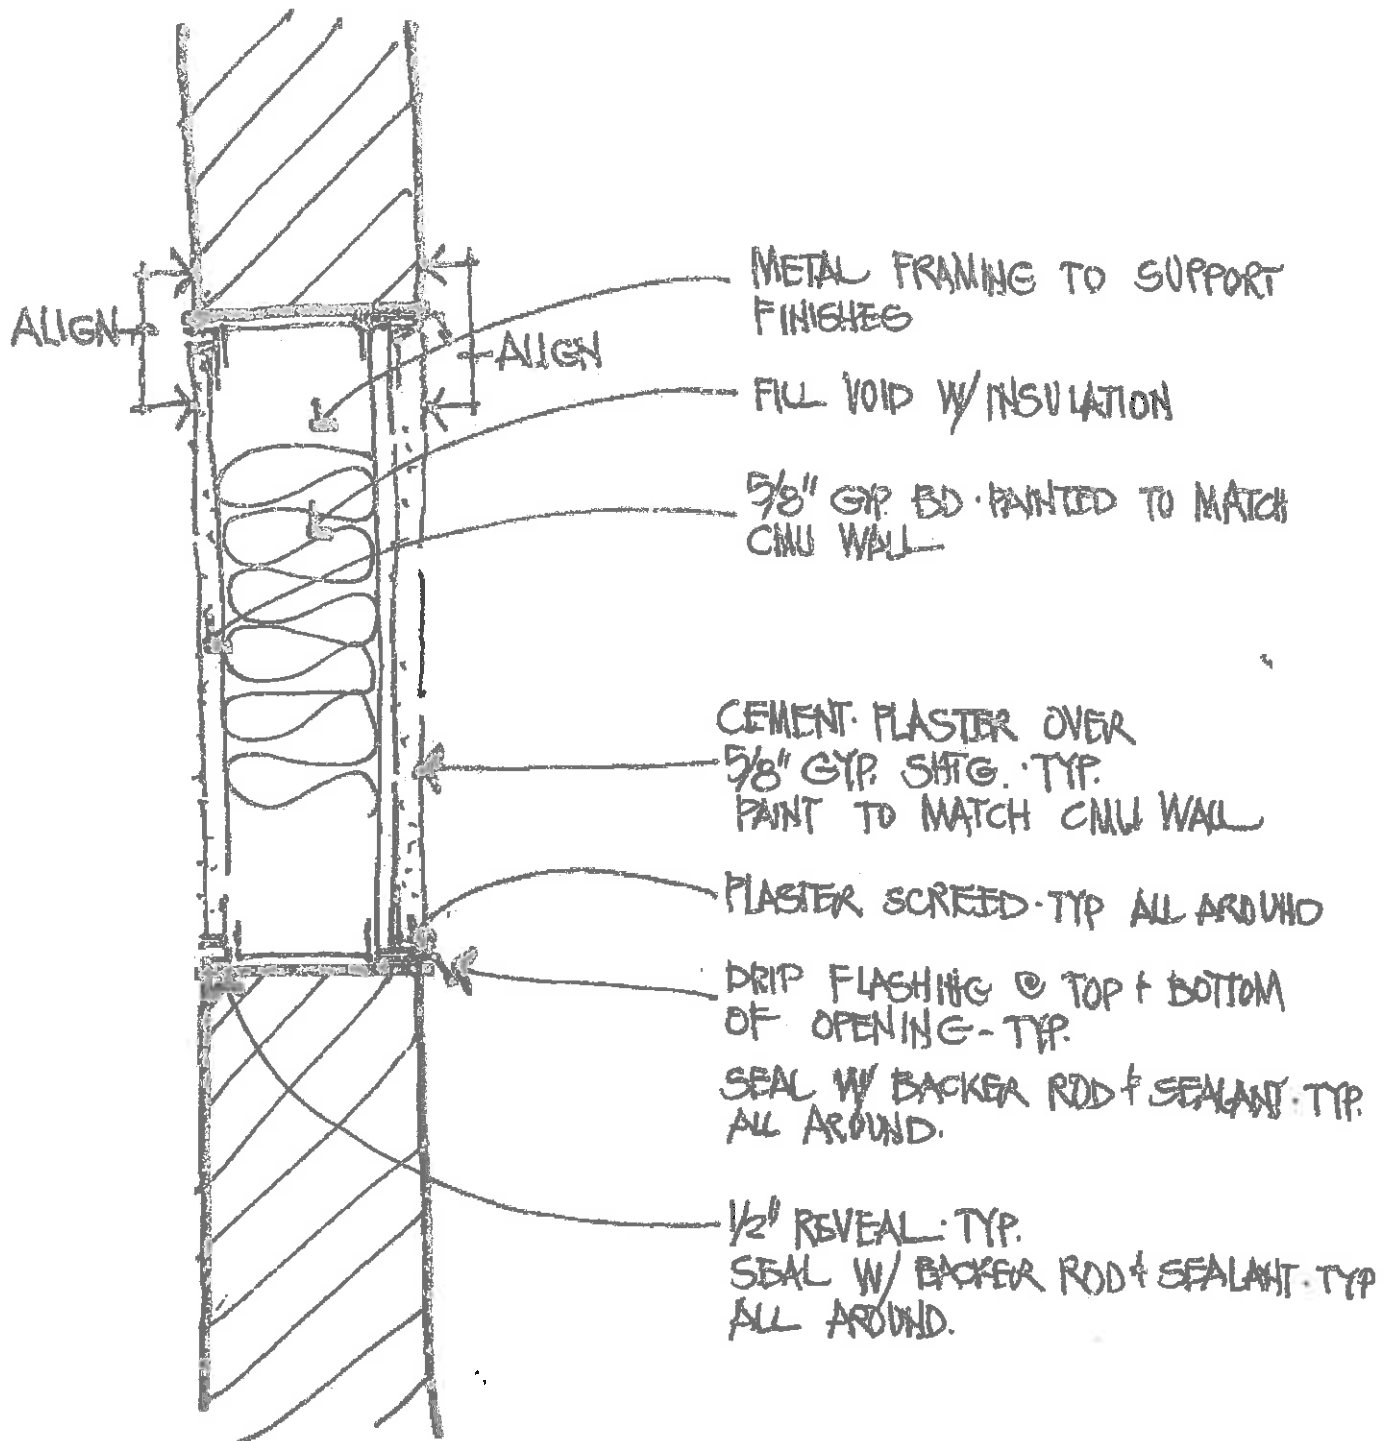 METAL FRAMING TO SUPPORT
FINISHES
ALIGN
ALIGN
FILL VOID W/ INSULATION
5/8" GYP. BD · PAINTED TO MATCH
CMU WALL
CEMENT · PLASTER OVER
5/8" GYP. SHTG. · TYP.
PAINT TO MATCH CMU WALL
PLASTER SCREED · TYP ALL AROUND
DRIP FLASHING @ TOP & BOTTOM
OF OPENING - TYP.
SEAL W/ BACKER ROD & SEALANT · TYP.
ALL AROUND.
1/2" REVEAL · TYP.
SEAL W/ BACKER ROD & SEALANT · TYP
ALL AROUND.